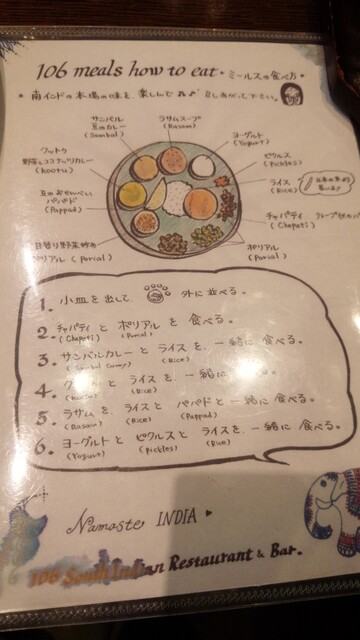 106 meals how to eat・ミールスの食べ方・
・南インドの本場の味を、楽しんで 召しあがって下さい。
サンバル
豆のカレー
(Sambal)
ラサムスープ
(Rasam)
ヨーグルト
(Yogurt)
クートゥ
野菜とココナッツカレー
(Kootu)
ピクルス
(Pickles)
ライス
(Rice)
豆のおせんべい
パパド
(Pappad)
チャパティ
(Chapati)
日替り野菜炒め
ポリアル (Porial)
ポリアル
(Porial)
1. 小皿を出して、外に並べる。
2. チャパティ と ポリアル を 食べる。
(Chapati) (Porial)
3. サンバルカレー と ライス を、一緒に 食べる。
(Sambal Curry) (Rice)
4. と ライス を、一緒に 食べる。
(Rice)
5. ラサム を、ライス と パパド と 一緒に 食べる。
(Rasam) (Rice) (Pappad)
6. ヨーグルト と ピクルス と ライス を、一緒に 食べる。
(Yogurt) (Pickles) (Rice)
Namaste INDIA
106 South Indian Restaurant & Bar.